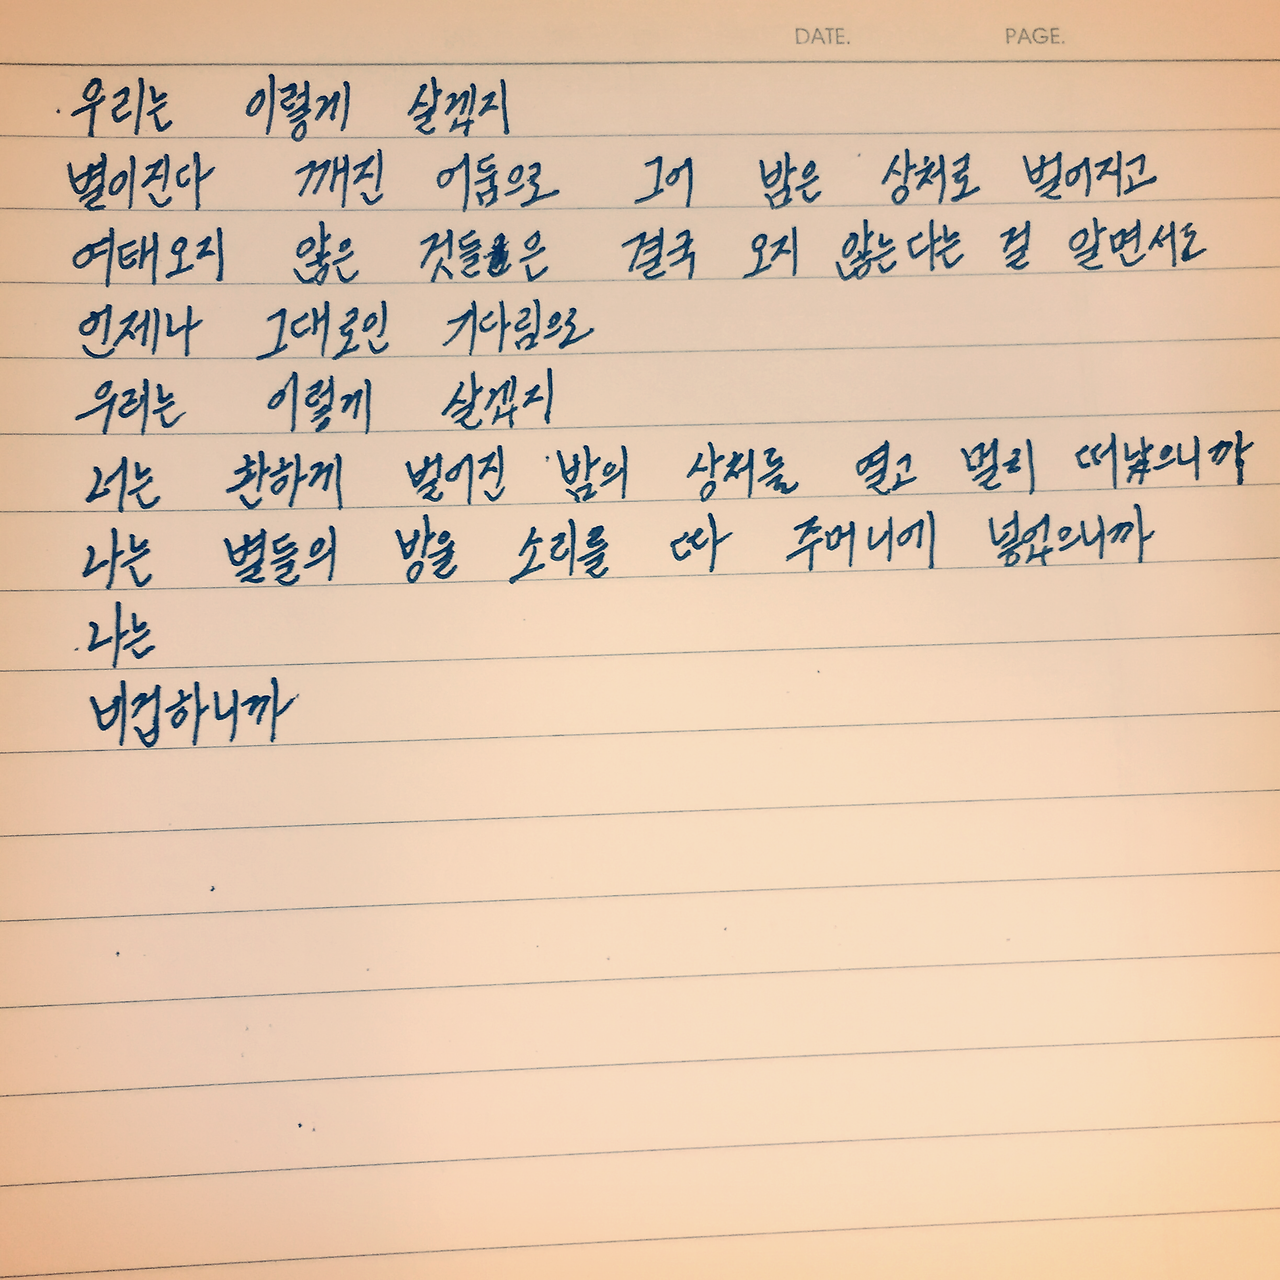 DATE. PAGE.
우리는 이렇게 살겠지
별이진다 깨진 어둠으로 그어 밤은 상처로 벌어지고
여태오지 않은 것들은 결국 오지 않는다는 걸 알면서도
언제나 그대로인 기다림으로
우리는 이렇게 살겠지
너는 환하게 벌어진 밤의 상처를 열고 멀리 떠났으니까
나는 별들의 방울 소리를 따 주머니에 넣었으니까
나는
비겁하니까